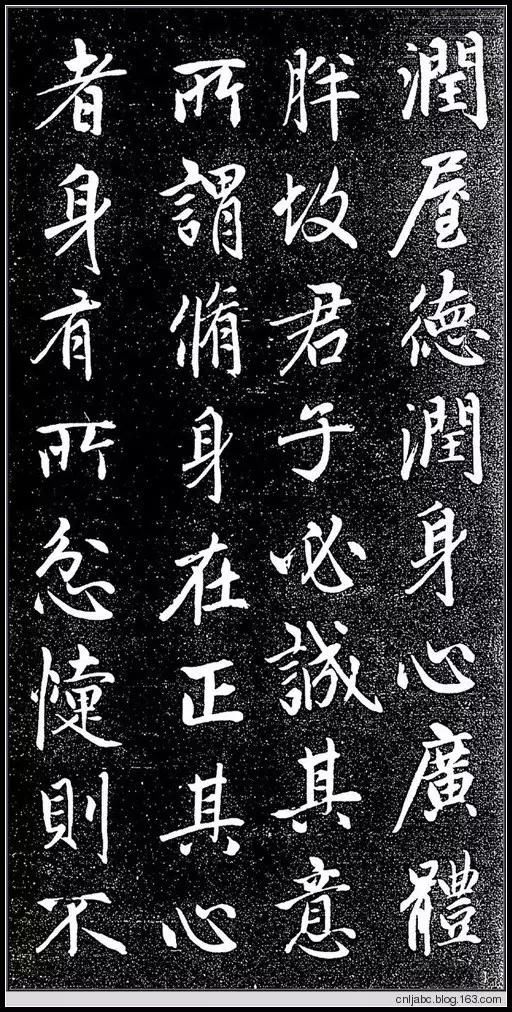 潤屋德潤身心廣體
胖故君子必誠其意
所謂脩身在正其心
者身有所忿懥則不
cnljabc.blog.163.com